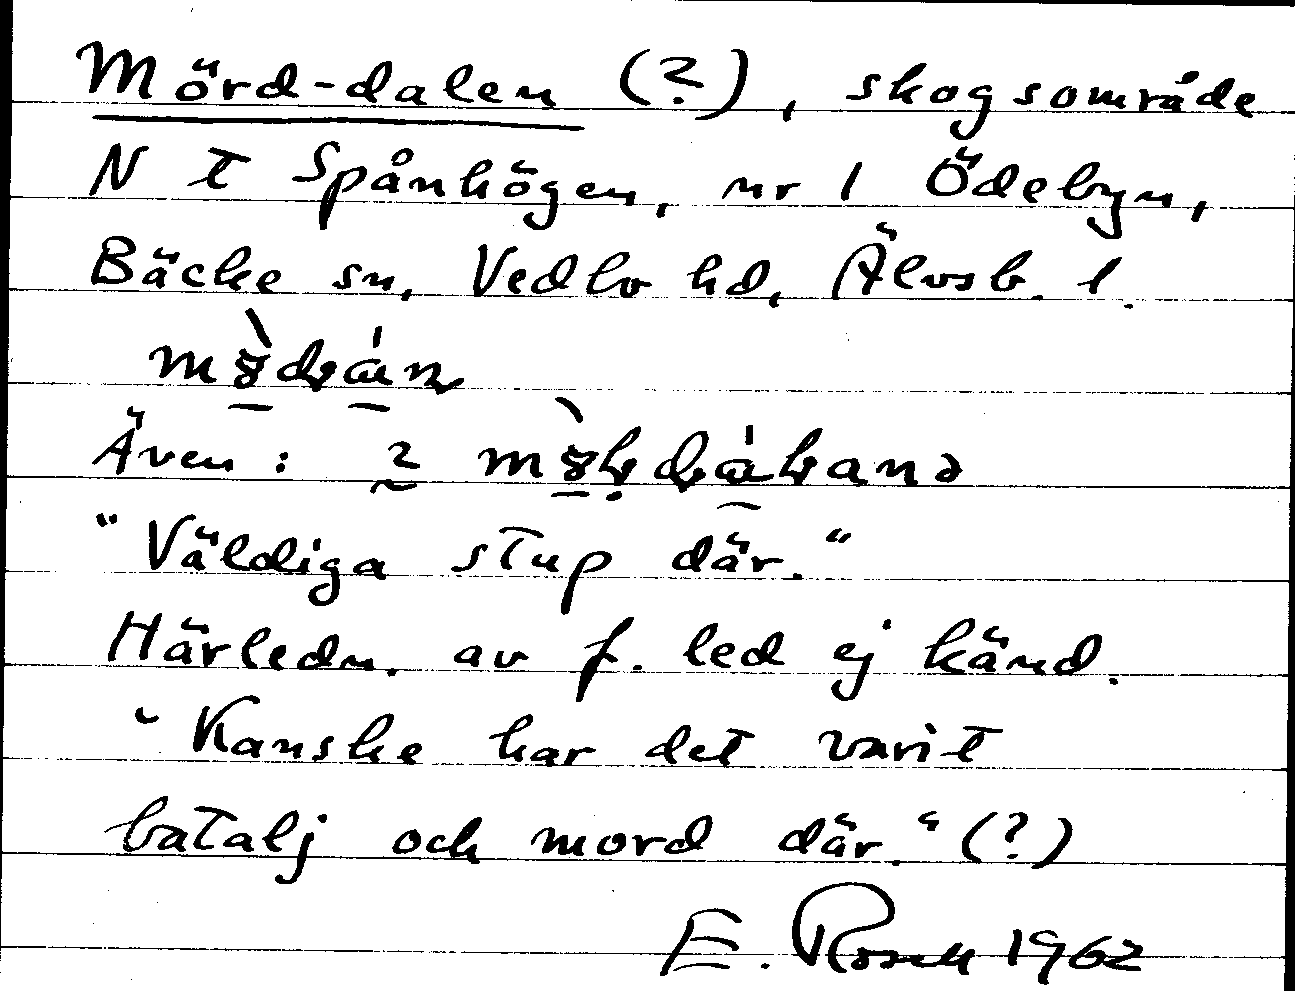 Mörd-dalen (?), skogsområde
N t Spånhögen, nr 1 Ödebyn,
Bäcke sn, Vedbo hd, Älvsb. l.
Även: 2
"Väldiga stup där."
Härledn. av f. led ej känd.
"Kanske har det varit
batalj och mord där." (?)
E. Rosell 1962